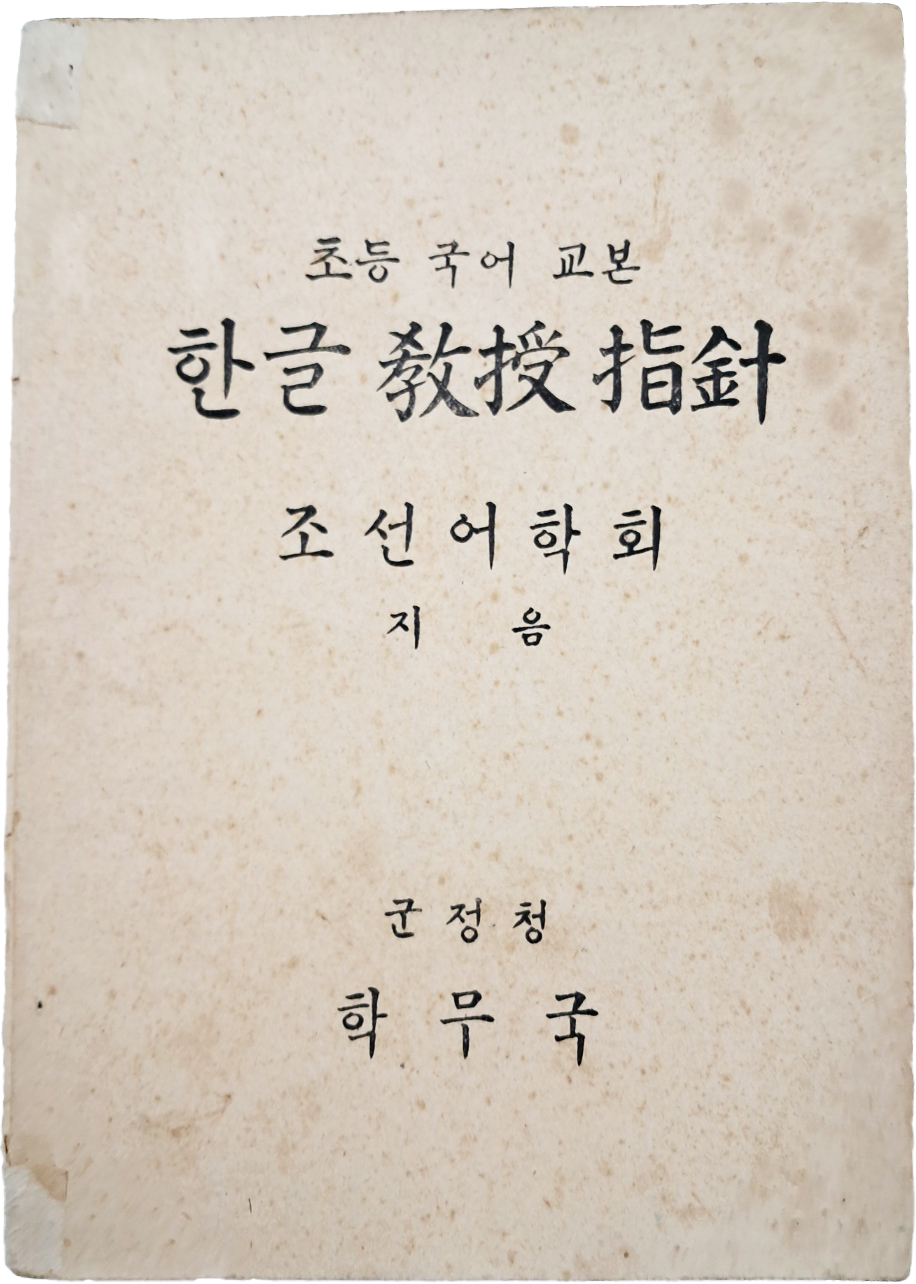 초등 국어 교본
한글 敎授 指針
조선어학회
지음
군정청
학무국